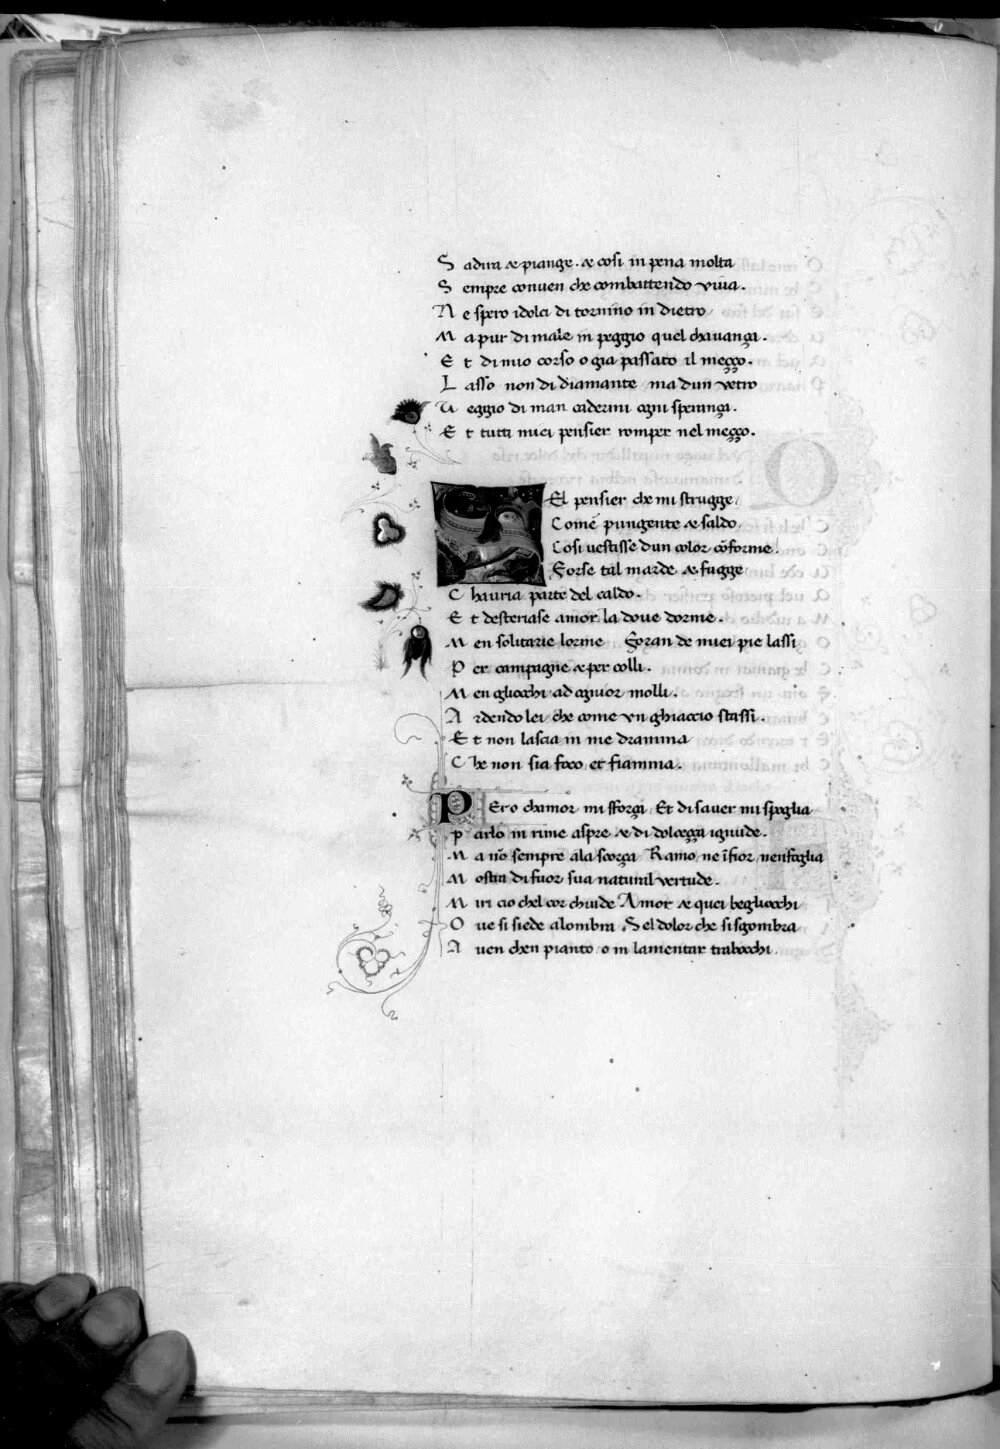 S adira & piange . & cosi in pena molta
S empre conuen che combattendo viua .
N e spero i dolci di tornino in dietro
M a pur di male in peggio quel chauanza .
E t di mio corso o gia passato il mezzo .
L asso non di diamante ma dun vetro
V eggio di man cadermi ogni speranza .
E t tutti miei pensier romper nel mezzo .
SEl pensier che mi strugge
Come pungente & saldo
Cosi uestisse dun color cōforme .
Forse tal marde & fugge
C hauria parte del caldo .
E t desteriase amor la doue dorme .
M en solitarie lorme Foran de miei pie lassi
P er campagne & per colli .
M en gliocchi ad ognior molli .
A rdendo lei che come vn ghiaccio stassi .
E t non lascia in me dramma
C he non sia foco et fiamma .
PEro chamor mi sforza Et di sauer mi spoglia
P arlo in rime aspre & di dolcezza ignude .
M a nō sempre ala scorza Ramo ne ī fior nen foglia
M ostra di fuor sua natural vertude .
M iri cio chel cor chiude Amor & quei begliocchi
O ue si siede a lombra Sel dolor che si sgombra
A uen chen pianto o in lamentar trabocchi .